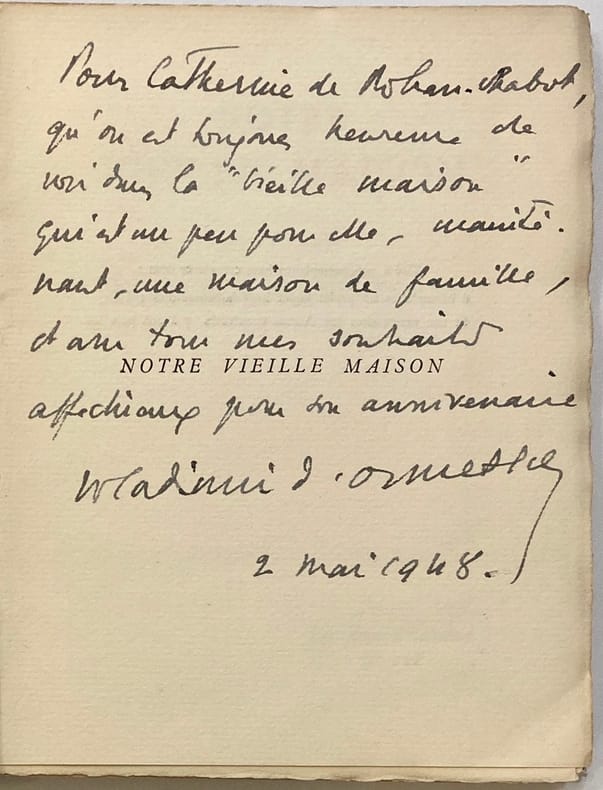 Pour Catherine de Rohan-Chabot,
qu'on est toujours heureux de
voir dans la "vieille maison"
qui est un peu pour elle, mainte-
nant, une maison de famille,
et avec tous mes souhaits
NOTRE VIEILLE MAISON
affectueux pour son anniversaire
Wladimir d'Ormesson
2 mai 1948.